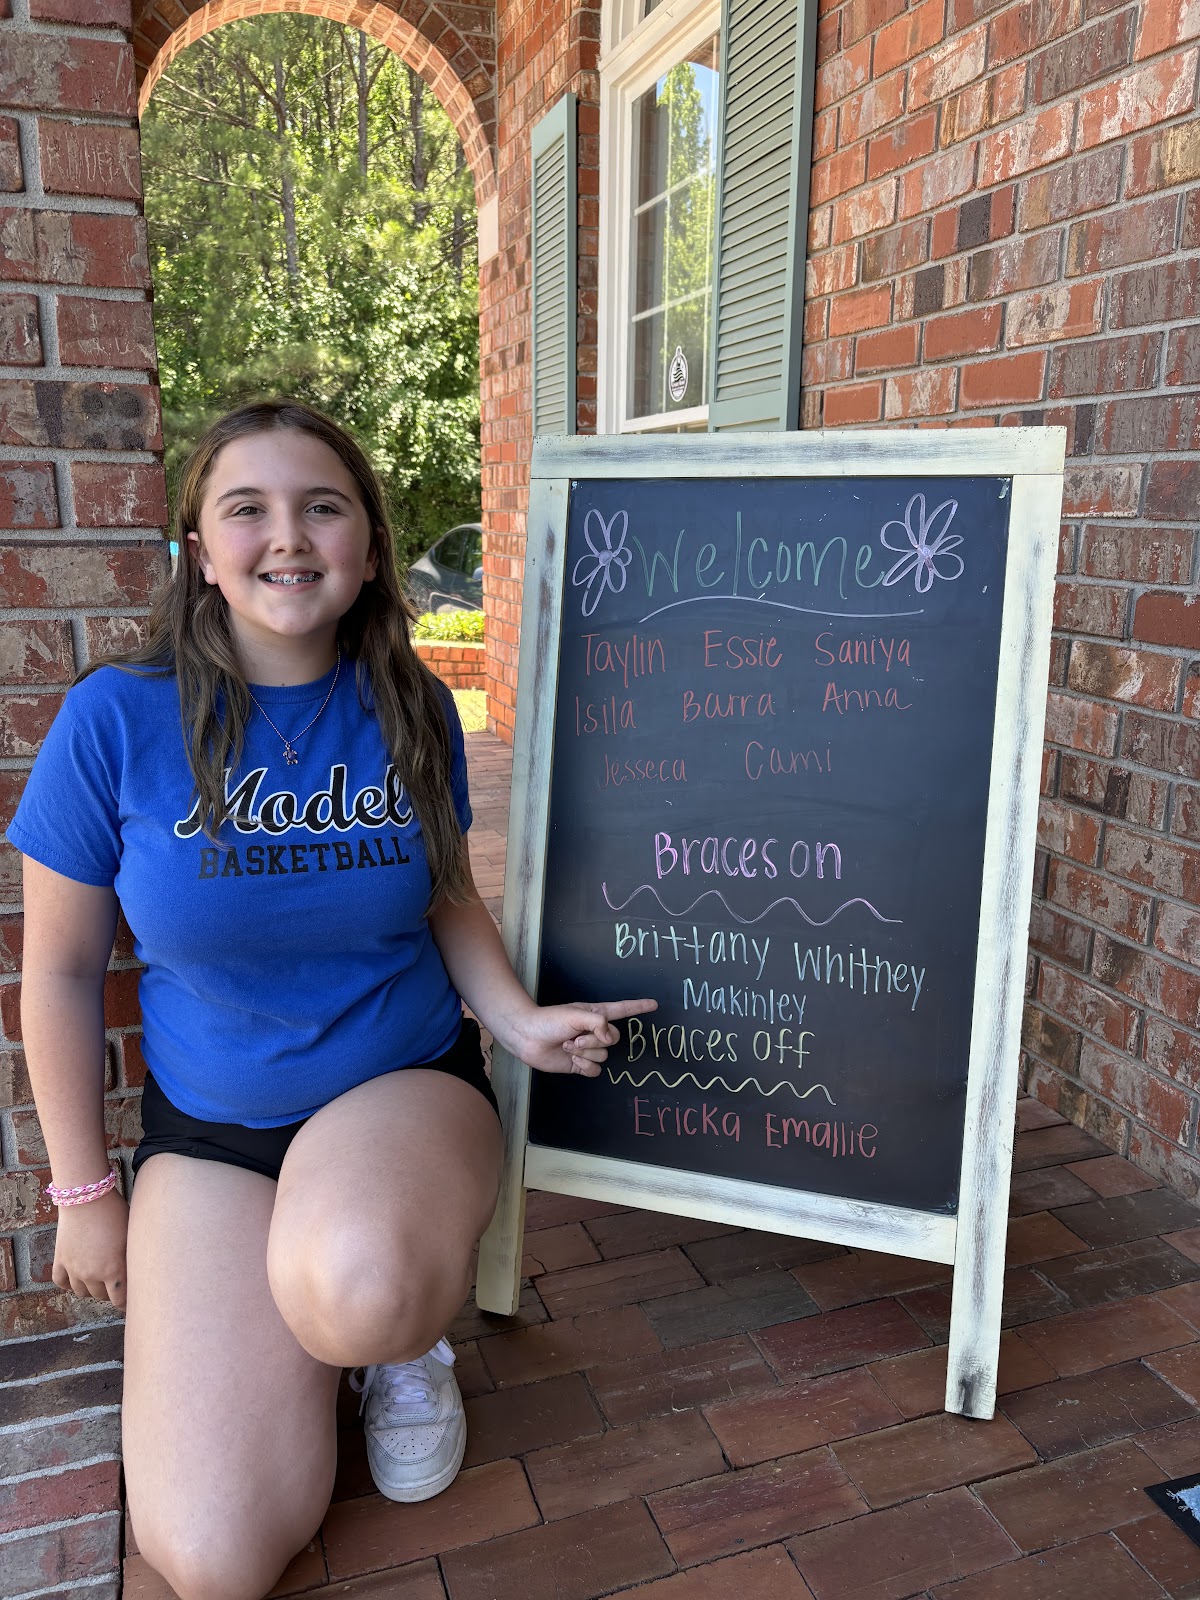 Model
BASKETBALL
Welcome
Taylin Essie Saniya
Isila Barra Anna
Jesseca Cami
Braces on
Brittany Whitney
Makinley
Braces off
Ericka Emallie